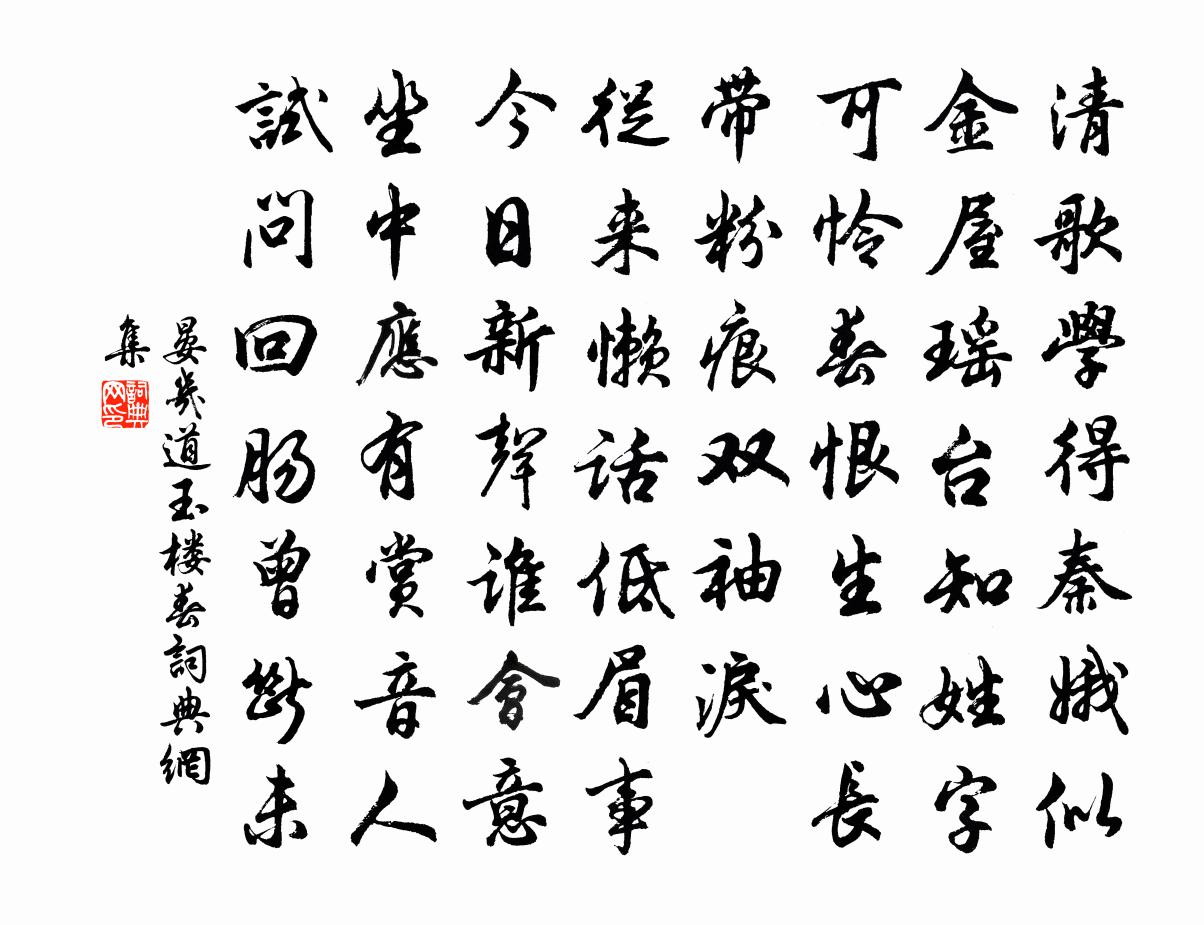 清歌學得秦娥似
金屋瑶台知姓字
可怜春恨生心長
带粉痕双袖淚
從来懒话低眉事
今日新聲谁會意
坐中應有赏音人
試问回肠曾断未
晏几道玉楼春詞典網
集
詞典网印